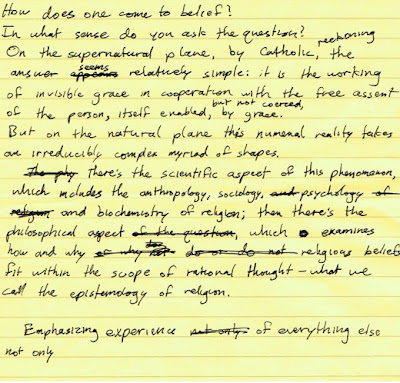 How does one come to belief?
In what sense do you ask the question?
On the supernatural plane, by Catholic reckoning, the
answer seems relatively simple: it is the working
of invisible grace in cooperation with the free assent
of the person, itself enabled, but not coerced, by grace.
But on the natural plane this numenal reality takes
an irreducibly complex myriad of shapes.
The phy There's the scientific aspect of this phenomenon,
which includes the anthropology, sociology, and psychology of
religion and biochemistry of religion; then there's the
philosophical aspect of the question, which examines
how and why or why not do or do not religious beliefs
fit within the scope of rational thought – what we
call the epistemology of religion.
Emphasizing experience not only of everything else
not only